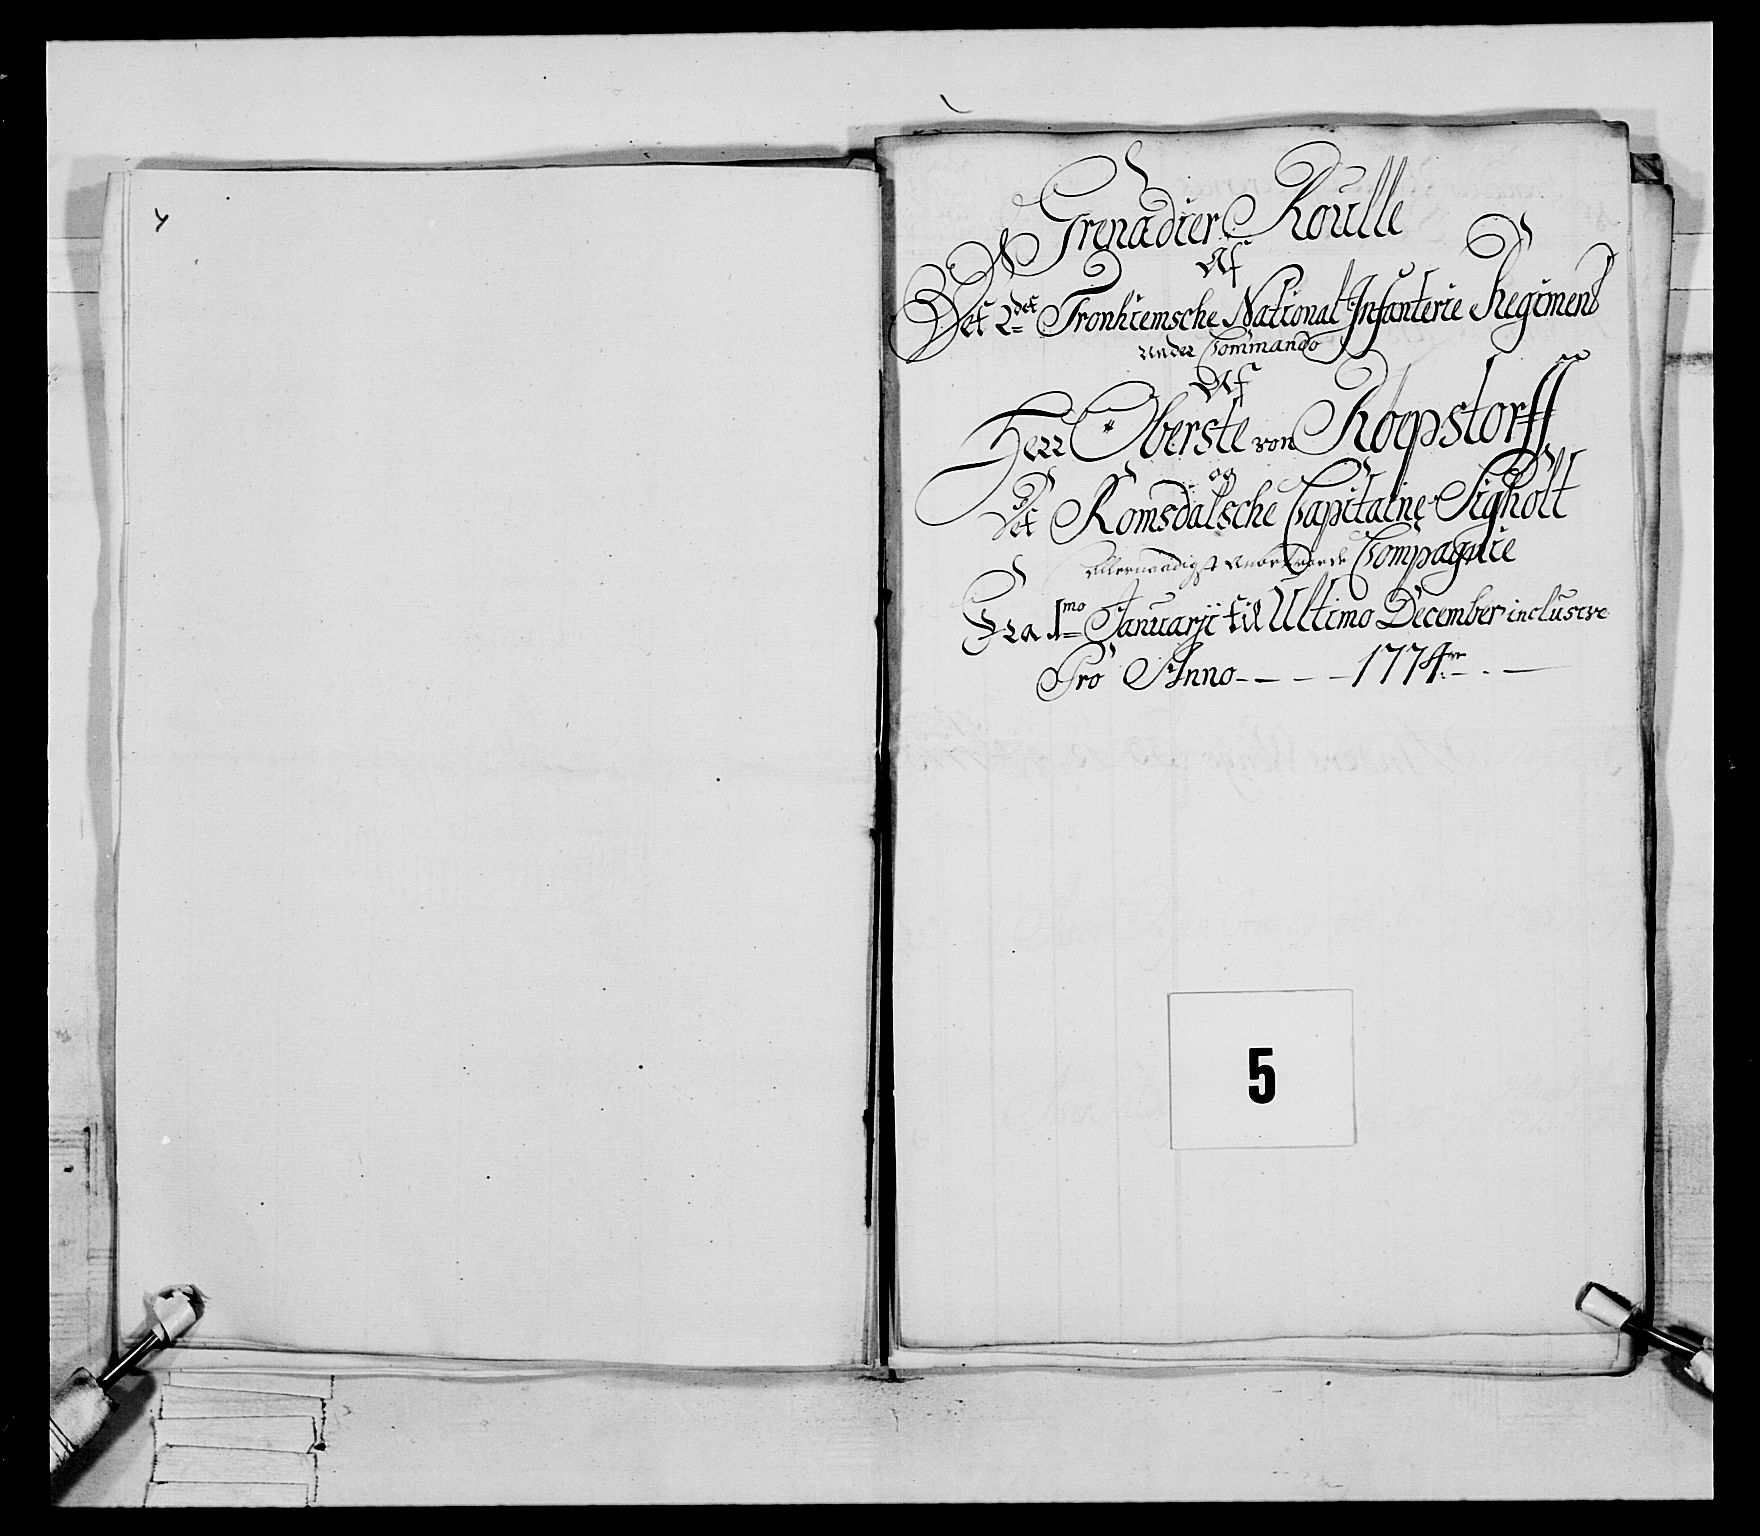 Grenadier Roulle
Af
Det 2det Tronhiemsche National Infanterie Regiment
under Commando
Af
Herr Oberste von Roepstorff
og
Det Romsdalsche Capitaine Sigholt
Allernaadigst anbetroede Compagnie
Fra 1mo Januarii til Ultimo December inclusive
Pro Anno - - - - 1774
5